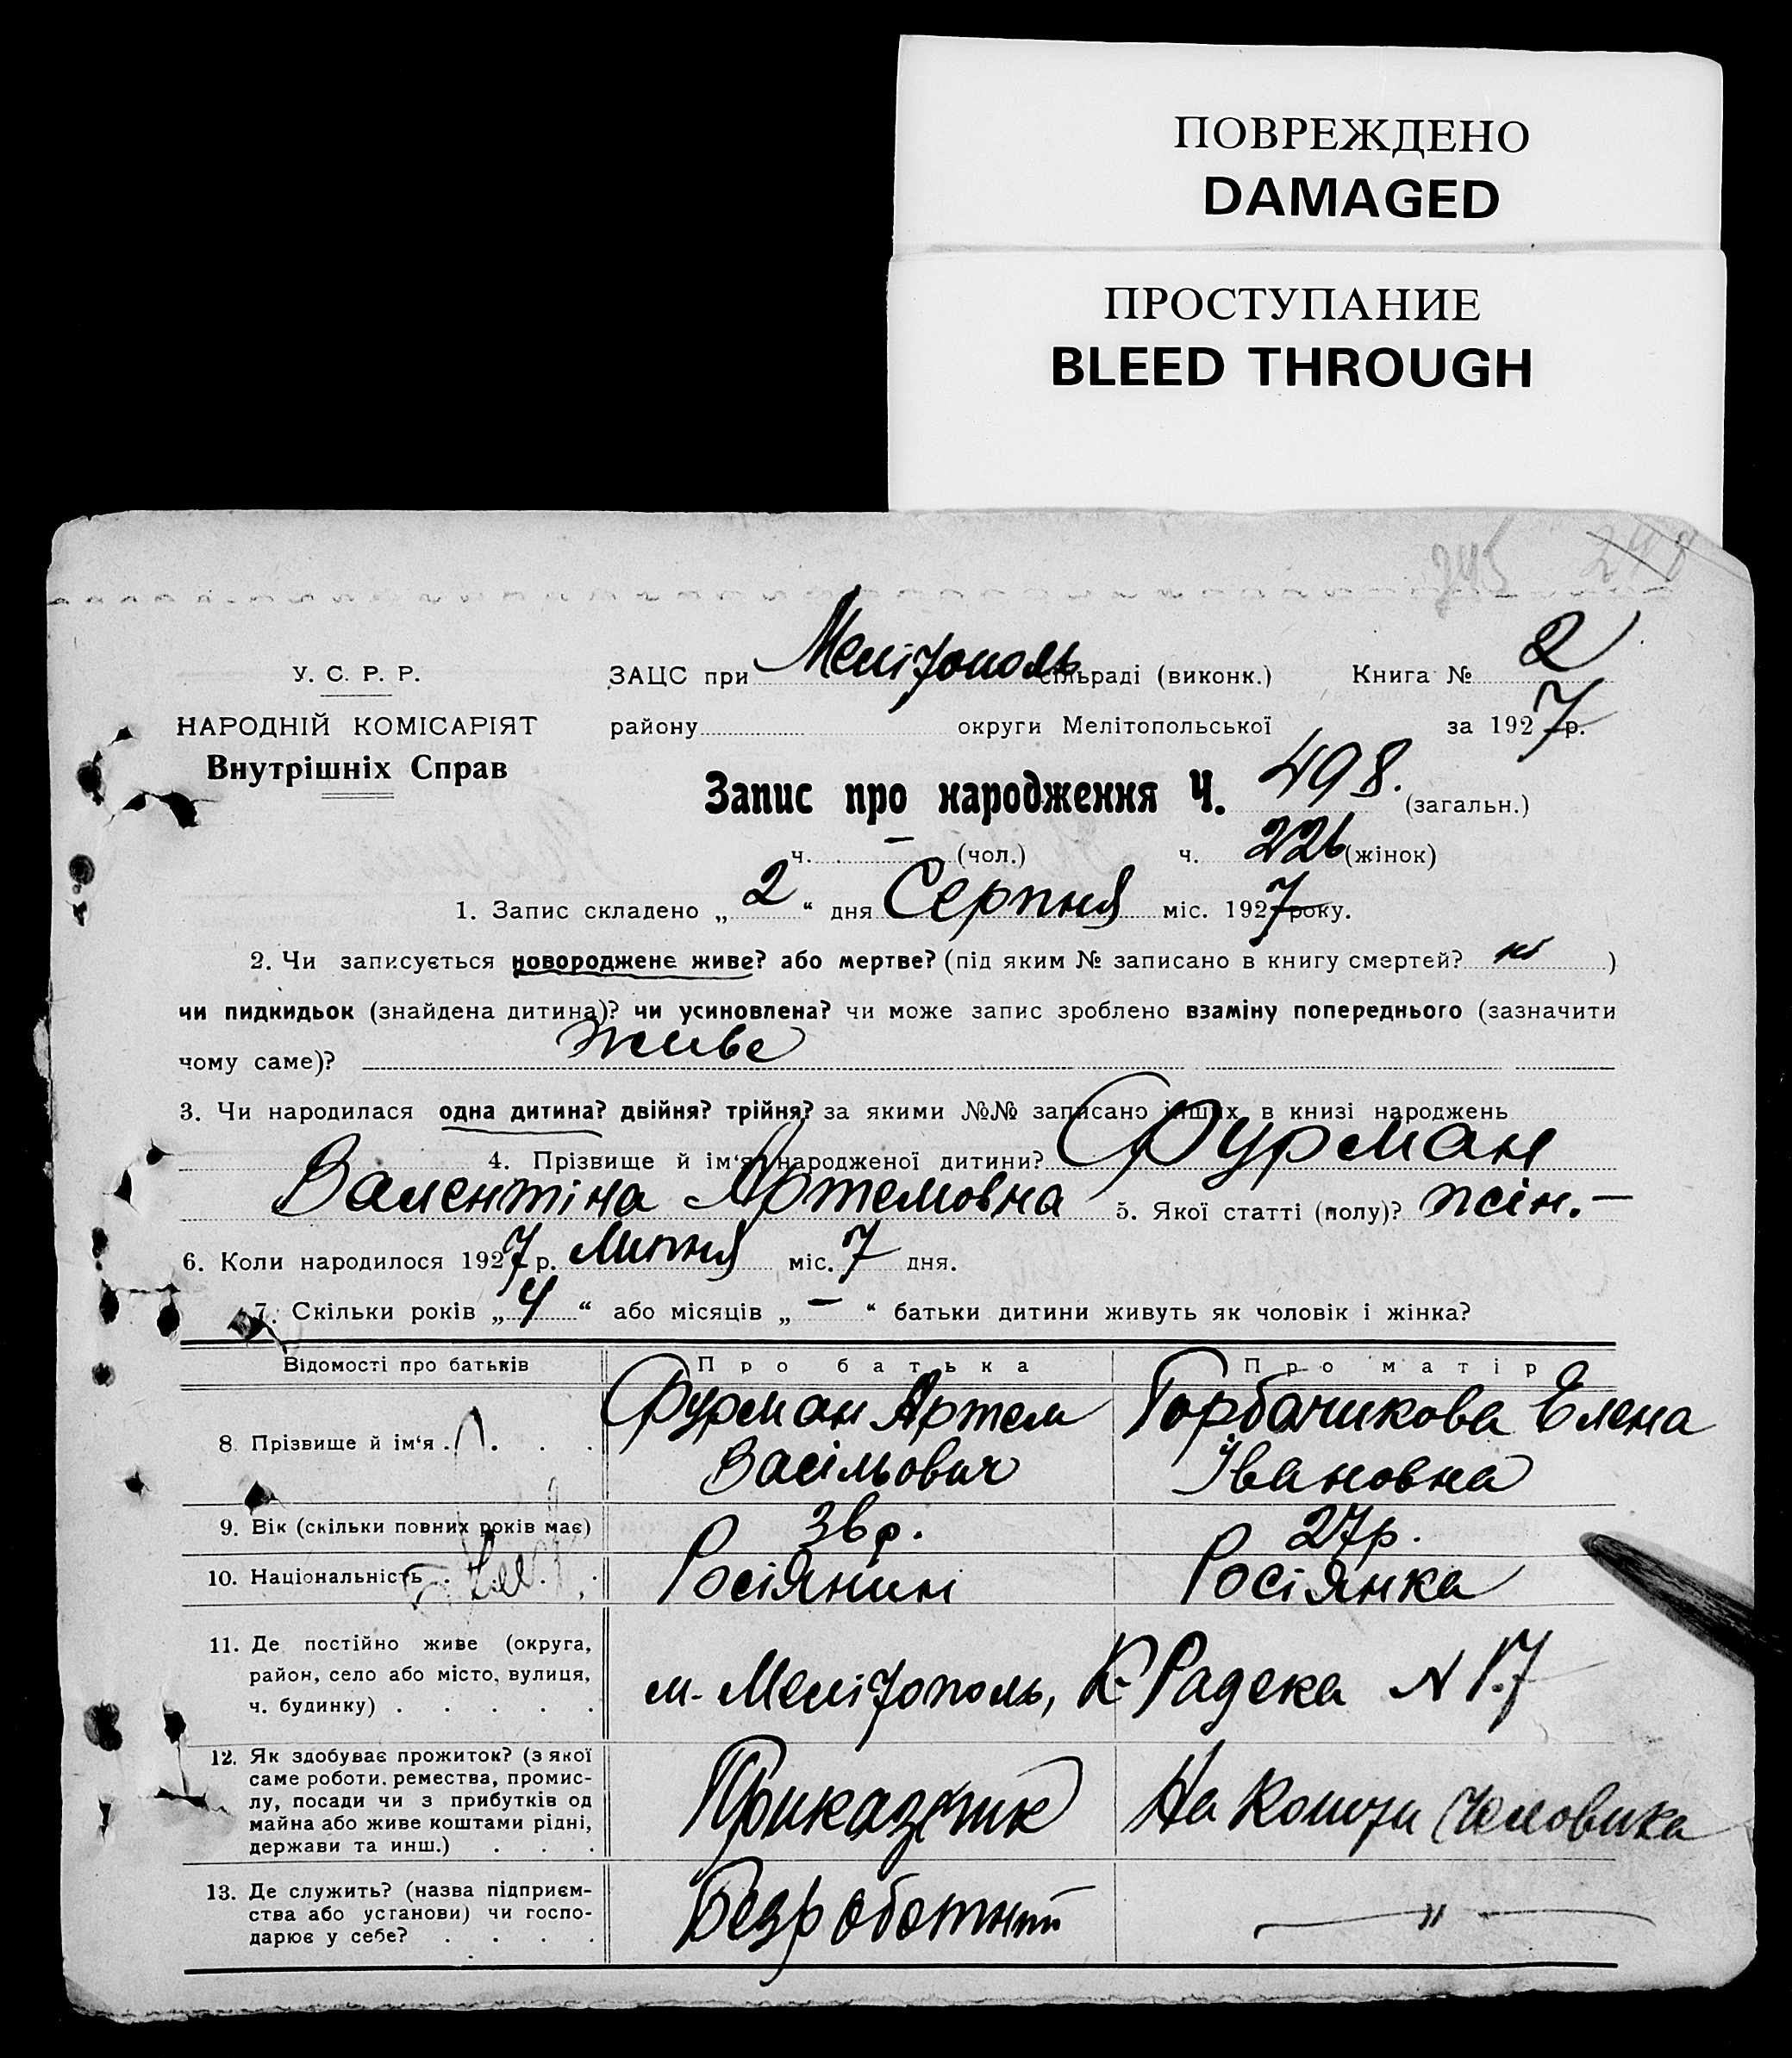 ПОВРЕЖДЕНО
DAMAGED
ПРОСТУПАНИЕ
BLEED THROUGH
245 248
У. С. Р. Р.
НАРОДНІЙ КОМІСАРІЯТ
Внутрішніх Справ
ЗАЦС при Мелітополь сільраді (виконк.) Книга № 2
району округи Мелітопольської за 1927 р.
Запис про народження Ч. 498. (загальн.)
ч. — (чол.) ч. 226 (жінок)
1. Запис складено „ 2 “ дня Серпня міс. 1927 року.
2. Чи записується новороджене живе? або мертве? (під яким № записано в книгу смертей? )
чи пидкидьок (знайдена дитина)? чи усиновлена? чи може запис зроблено взаміну попереднього (зазначити
чому саме)? живе
3. Чи народилася одна дитина? двійня? трійня? за якими №№ записано інших в книзі народжень
4. Прізвище й ім‘я народженої дитини? Фурман
Валентіна Артемовна 5. Якої статті (полу)? жін. —
6. Коли народилося 1927 р. Липня міс. 7 дня.
7. Скільки років „ 4 “ або місяців „ — “ батьки дитини живуть як чоловік і жінка?
Відомості про батьків Про батька Про матір
8. Прізвище й ім‘я . . . Фурман Артем Горбачикова Елена
Васільович Івановна
9. Вік (скільки повних років має) 36 р. 27 р.
10. Національність . . . Росіянин Росіянка
11. Де постійно живе (округа,
район, село або місто, вулиця,
ч. будинку) . . . . . м. Мелітополь, К. Радека N 17
12. Як здобуває прожиток? (з якої
саме роботи. ремества, промис-
лу, посади чи з прибутків од
майна або живе коштами рідні,
держави та инш.) . . . Приказчик На кошти Чоловика
13. Де служить? (назва підприєм-
ства або установи) чи госпо-
дарює у себе? . . . . Безроботний — " —